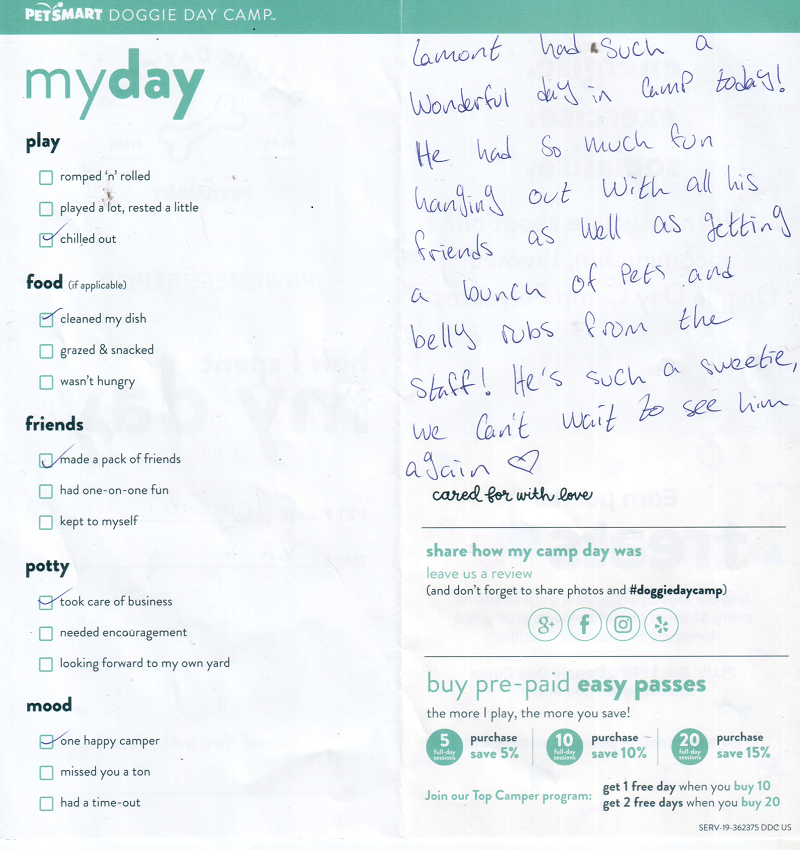 PETSMART DOGGIE DAY CAMP™
myday
play
romped 'n' rolled
played a lot, rested a little
chilled out
food (if applicable)
cleaned my dish
grazed & snacked
wasn't hungry
friends
made a pack of friends
had one-on-one fun
kept to myself
potty
took care of business
needed encouragement
looking forward to my own yard
mood
one happy camper
missed you a ton
had a time-out
Lamont had such a
Wonderful day in camp today!
He had so much fun
hanging out with all his
friends as well as getting
a bunch of Pets and
belly rubs from the
Staff! He's such a sweetie,
we can't wait to see him
again ♡
cared for with love
share how my camp day was
leave us a review
(and don't forget to share photos and #doggiedaycamp)
g+ f
buy pre-paid easy passes
the more I play, the more you save!
5 full-day sessions purchase save 5%
10 full-day sessions purchase save 10%
20 full-day sessions purchase save 15%
Join our Top Camper program: get 1 free day when you buy 10
get 2 free days when you buy 20
SERV-19-362375 DDC US